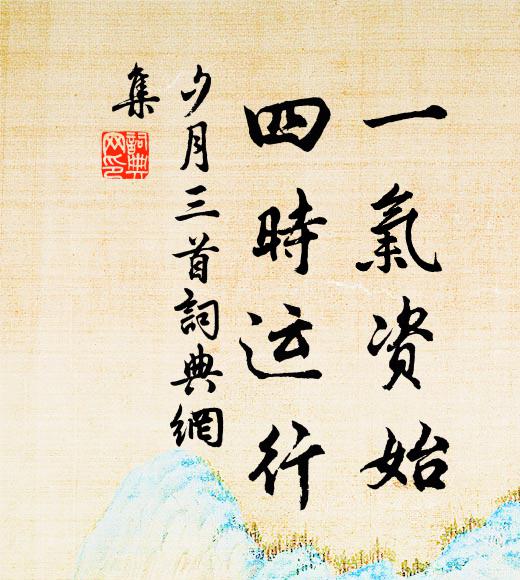 一氣资始
四時运行
夕月三首詞典網
集
詞典
网印